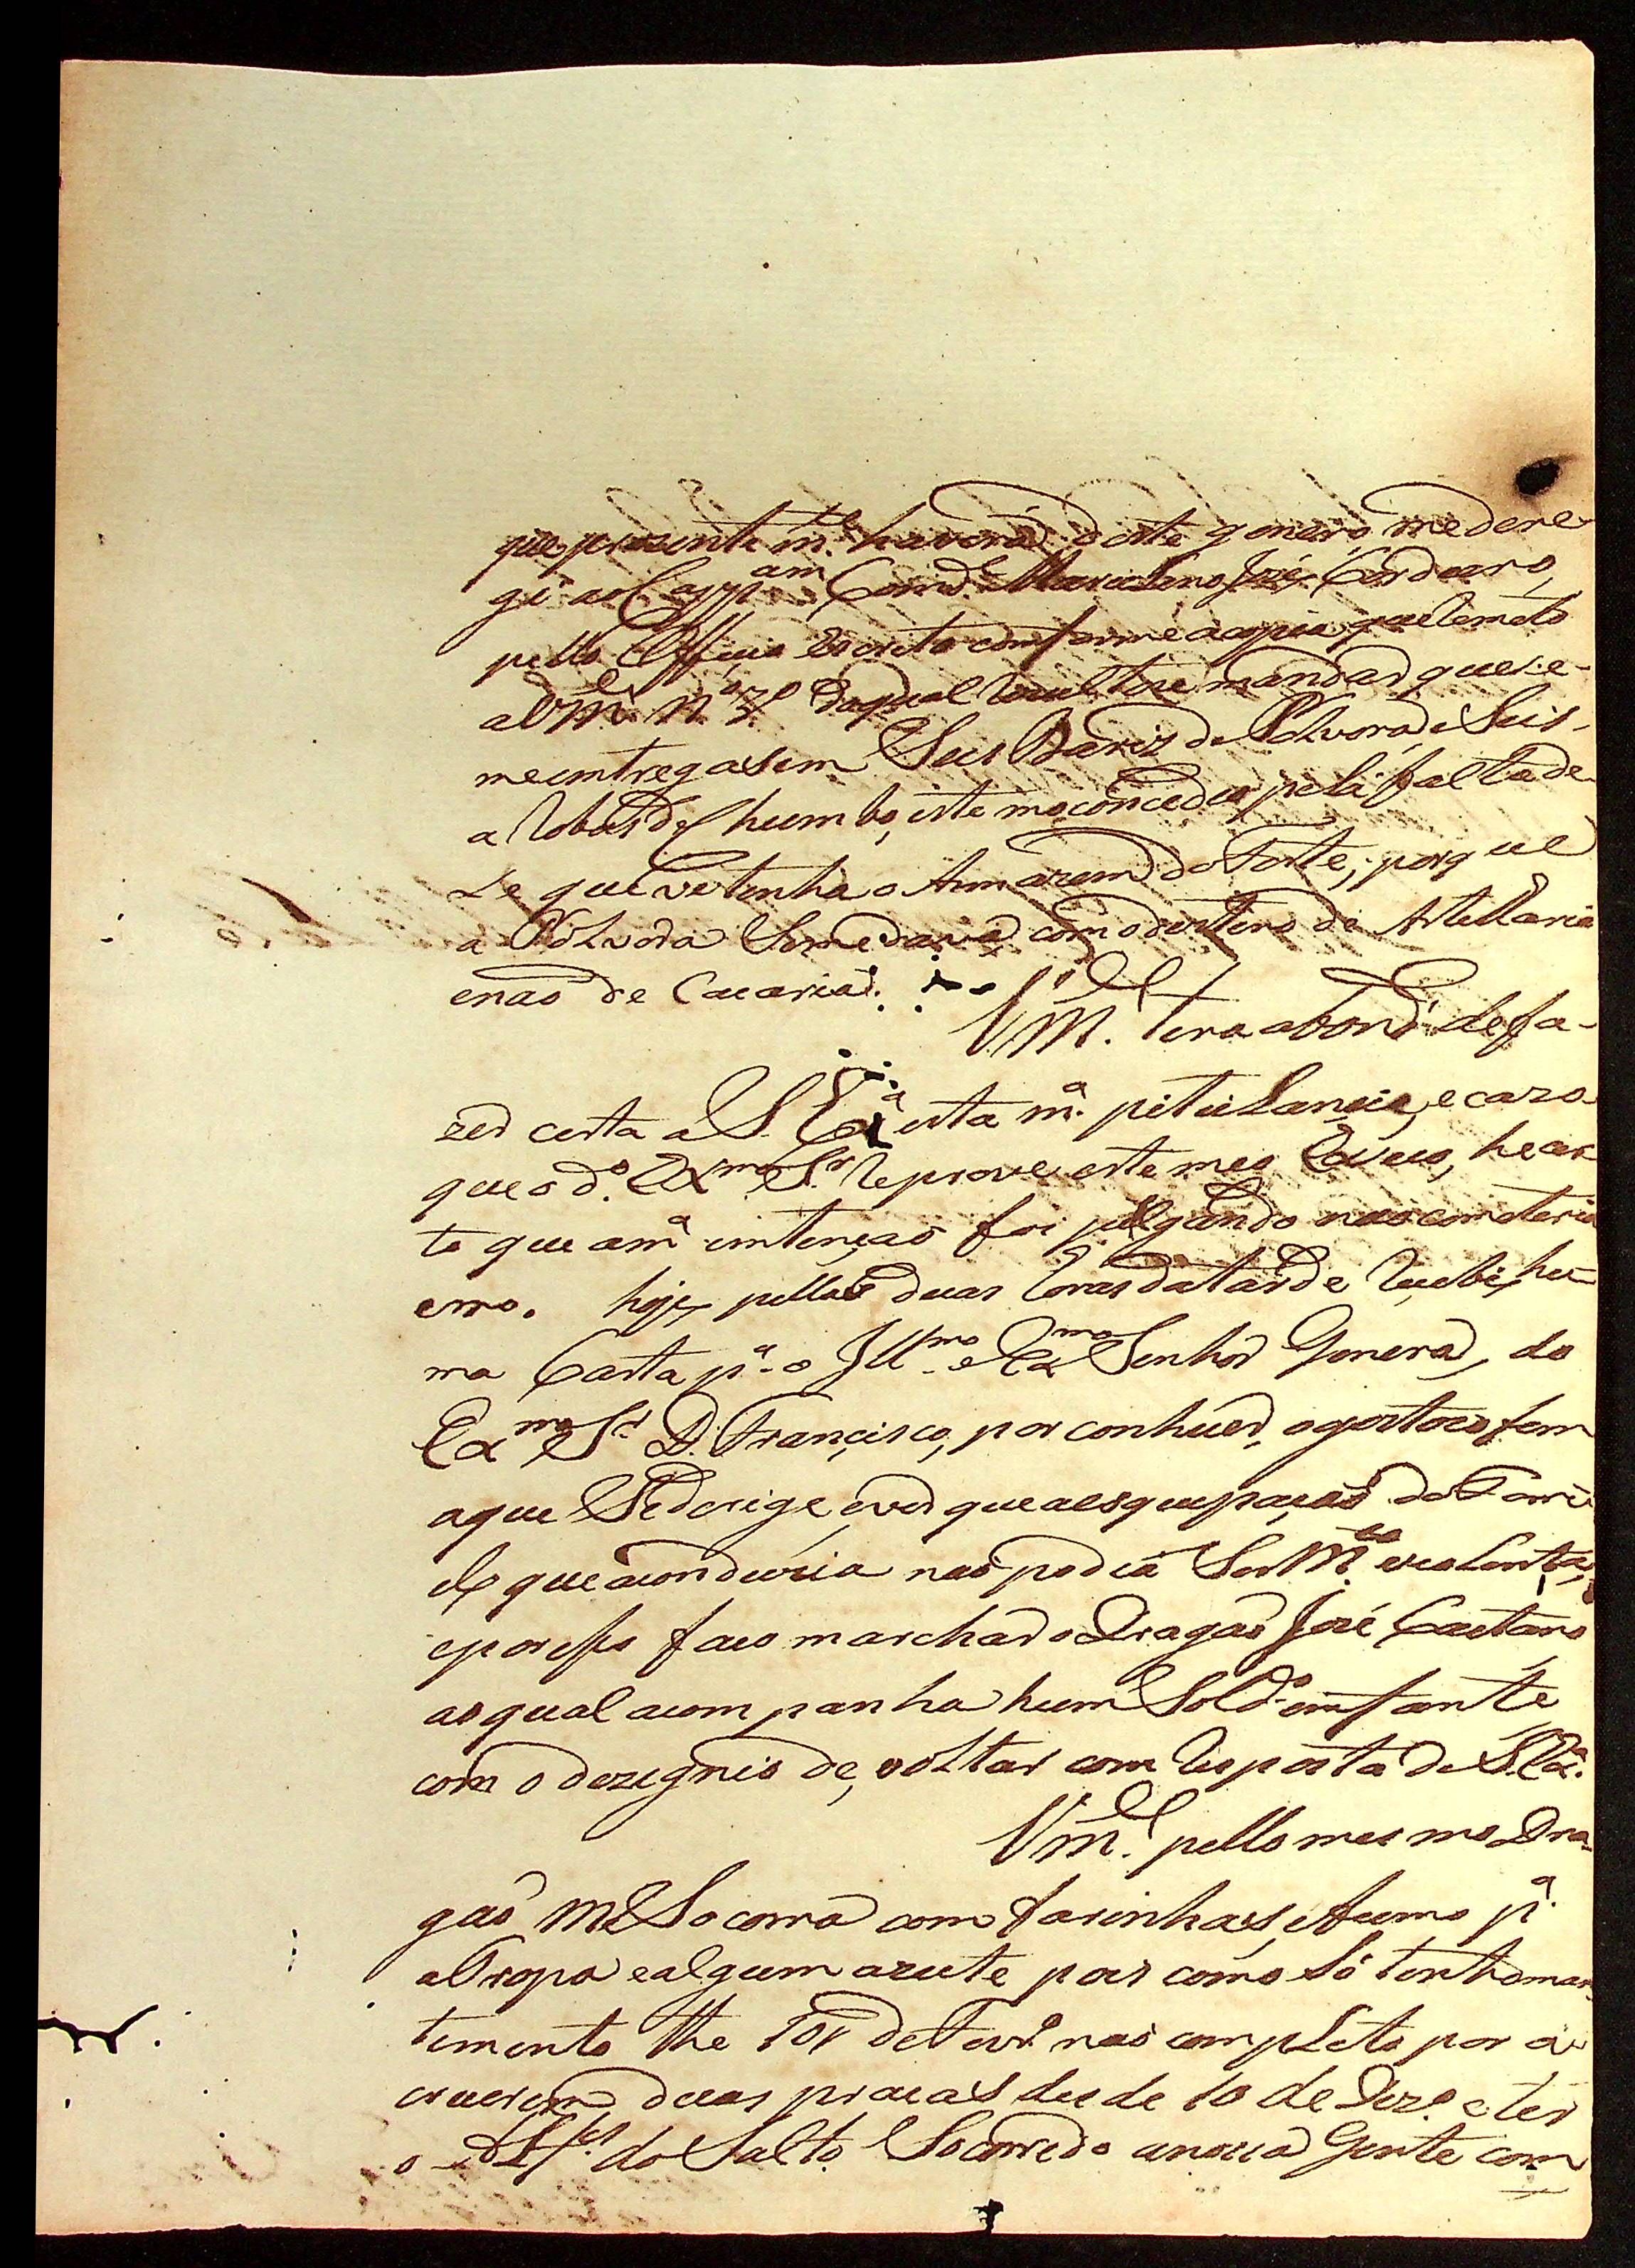 que prezentem.te haverá deste genero me dere
gi ao Capp.am Comd.e Marcelino Jozé Cordeiro,
pello Officio escrito conforme a copia que Remeto
a V M.ce N.º 3.º daqual Rezultou mandar que se
me entregasem Seis Barriz de Polvora, e Seis
aRobas de Chumbo, este me concedeo pela falta de
Le que Se tinha o Armazem do Forte; porque
a Pólvora Se me dava com o destino de Artellaria
e naõ de Cacaria.
V M.ce tera abond.e de fa-
zer certa a S. Ex.a esta m.a petulancia, e cazo
que o d.º Ex.mo S.r Reprove este meo Exceço, he cer
to que a m.a intençaõ foi julgando naõ cometeria
erro. hoje pellas duas Horas da tarde Recebi hu-
ma Carta p.a o Ill.mo e Ex.mo Senhor General, do
Ex.mo S.r D. Francisco, por conhecer, o gosto co fem
aque Se derige, e ver que a esquipaçaõ do
q que a conduzia naõ podia Ser M.to violenta,
e por iso faco marchar o Dragaõ Jozé Caetano
ao qual acompanha hum Sold.º imfante
com o dezignio de, voltar com Resposta de S. Ex.a
V m.ce pello mesmo Dra-
gaõ me Socorra com farinhas, e fumo p.a
a Tropa e algum azeite pois como Só tenho man
timento the 10 de Fevr.º naõ completo por a
crecerem duas pracas desde 10 de Dezr.º e ter
o Alf.es do Salto Socorrido a nossa Gente com